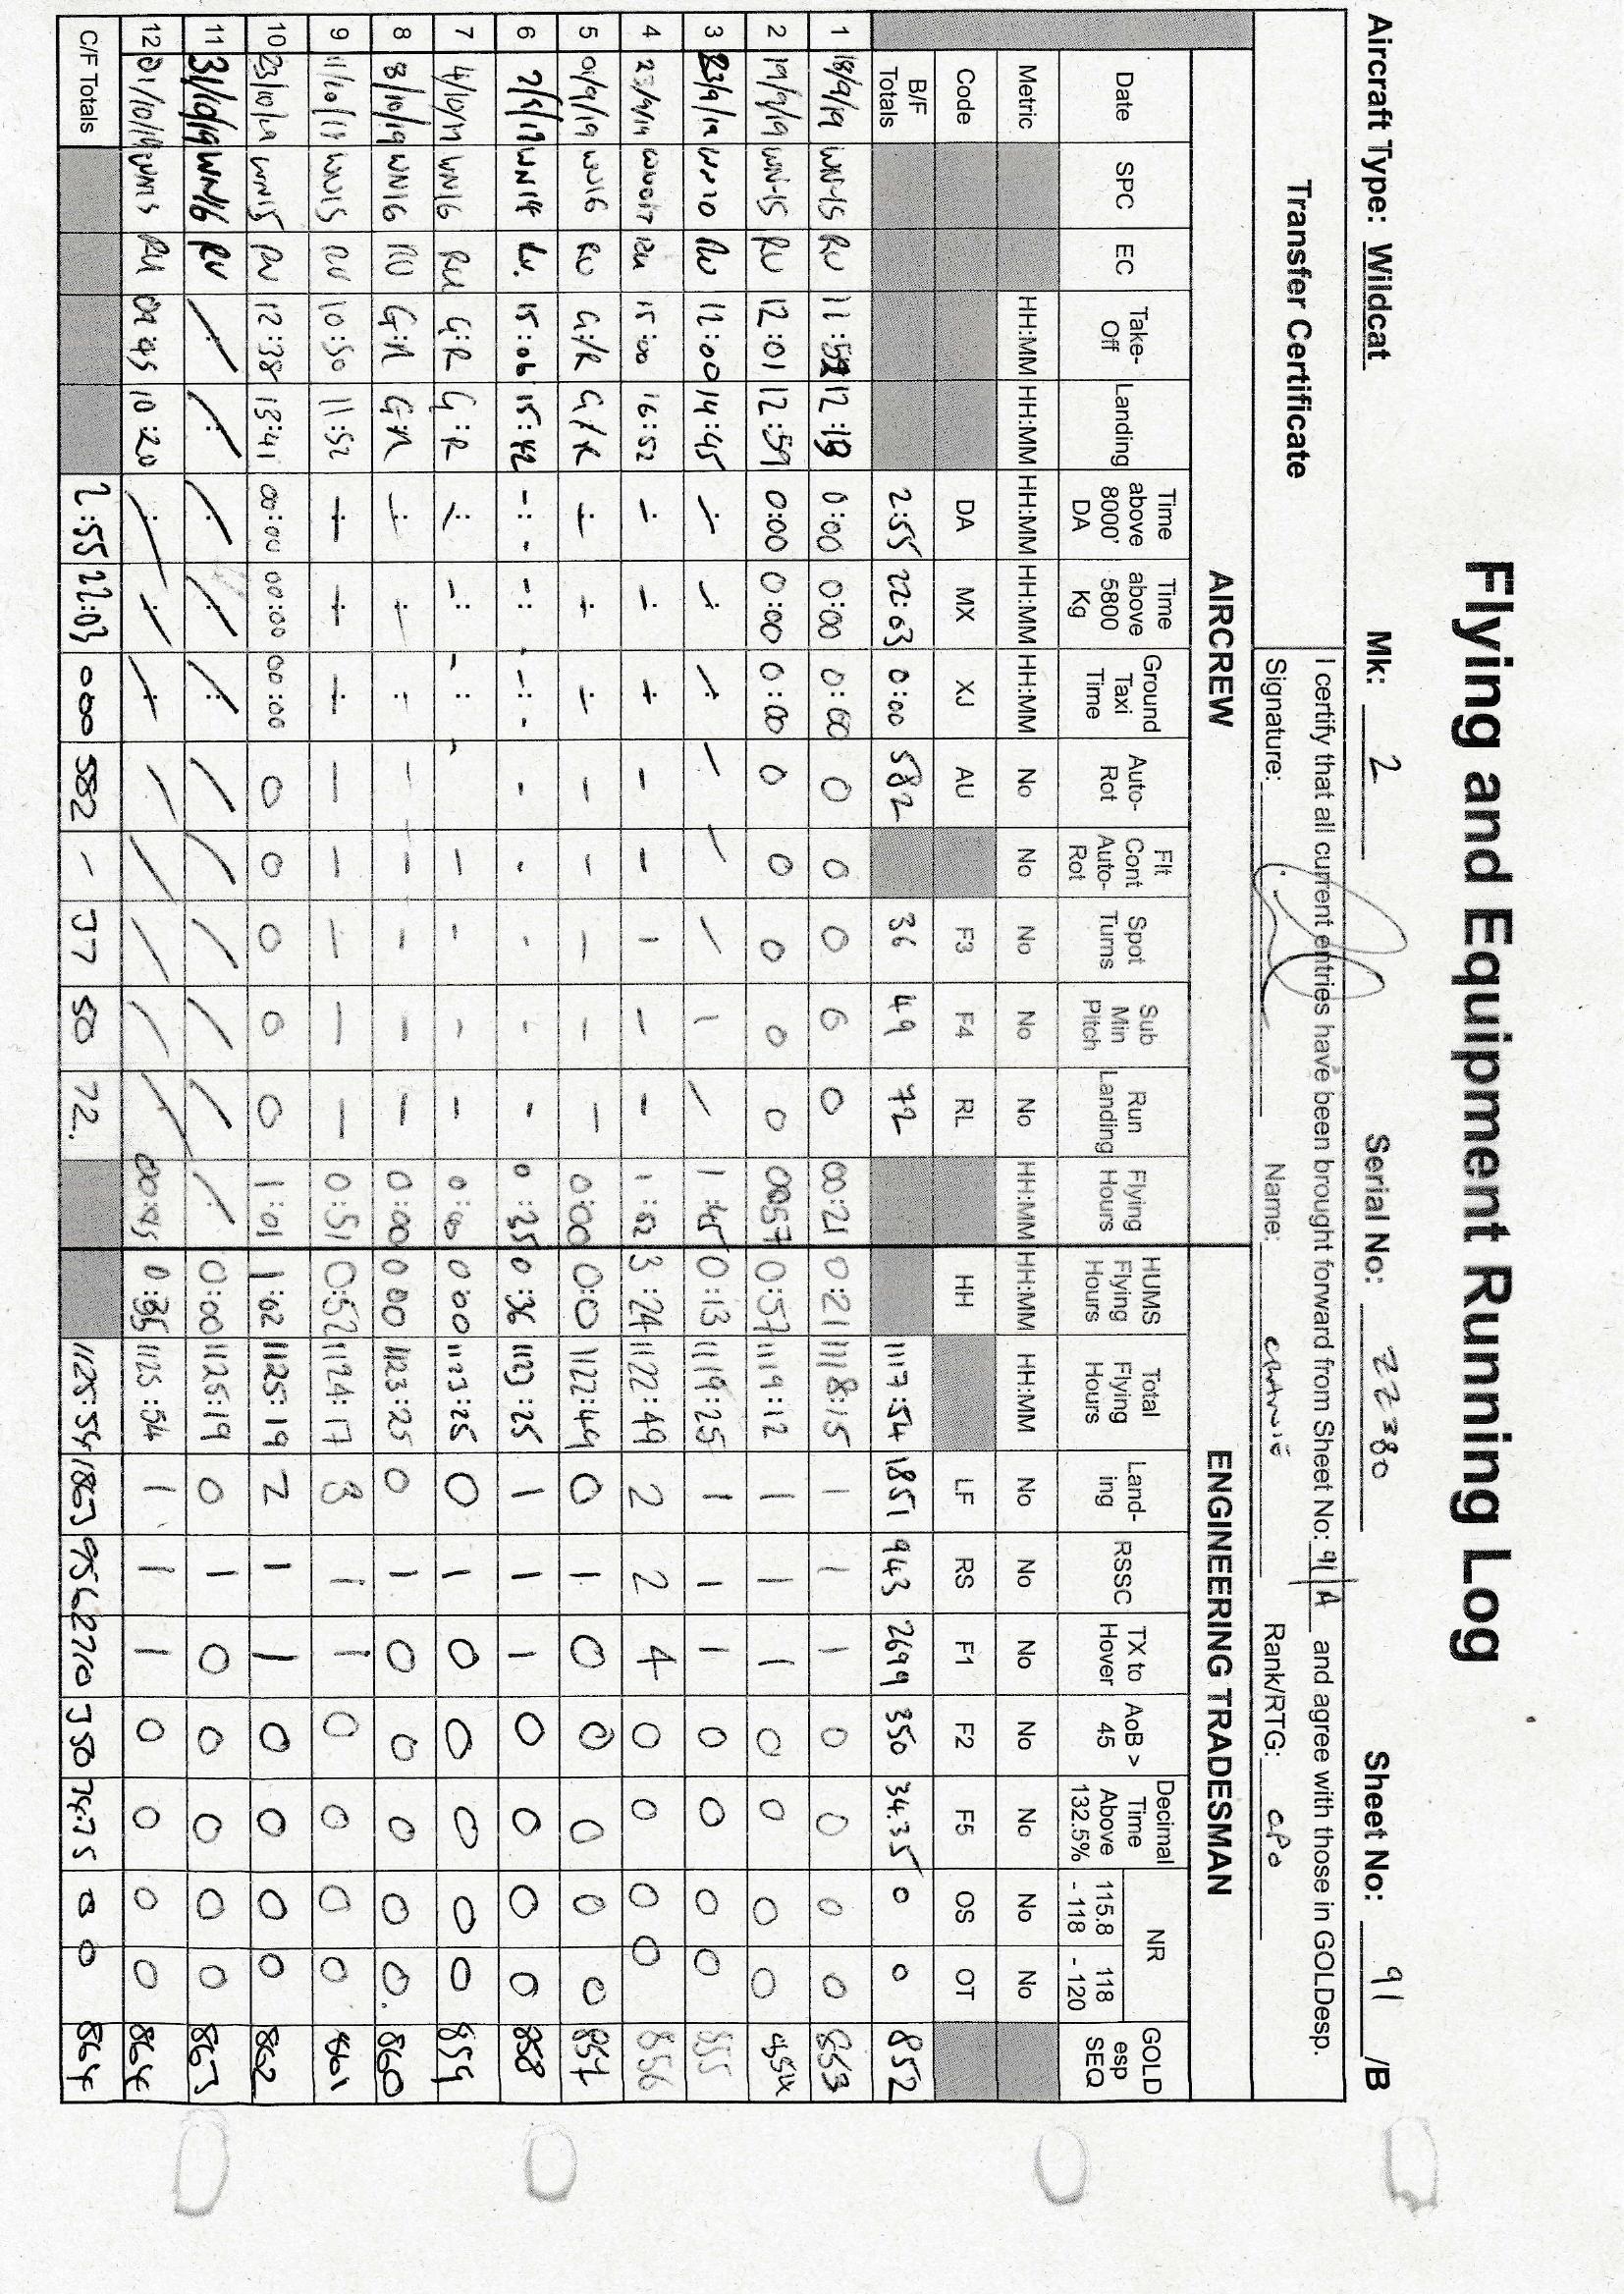 Flying and Equipment Running Log
Aircraft Type: Wildcat Mk: 2 Serial No: ZZ380 Sheet No: 91 /B
Transfer Certificate
I certify that all current entries have been brought forward from Sheet No: 91/A and agree with those in GOLDesp.
Signature: Name: Rank/RTG: CPO
AIRCREW ENGINEERING TRADESMAN
Date SPC EC Take-Off Landing Time above 8000' DA Time above 5800 Kg Ground Taxi Time Auto-Rot Flt Cont Auto-Rot Spot Turns Sub Min Pitch Run Landing Flying Hours HUMS Flying Hours Total Flying Hours Land-ing RSSC TX to Hover AoB > 45 Decimal Time Above 132.5% NR 115.8 - 118 118 - 120 GOLD esp SEQ
Metric HH:MM HH:MM HH:MM HH:MM HH:MM No No No No No HH:MM HH:MM HH:MM No No No No No No No
Code DA MX XJ AU F3 F4 RL HH LF RS F1 F2 F5 OS OT
B/F Totals 2:55 22:03 0:00 582 36 49 72 1117:54 1851 943 2699 350 34.35 0 0 852
1 18/9/19 WN-15 RU 11:52 12:19 0:00 0:00 0:00 0 0 0 0 0 00:21 0:21 1118:15 1 1 1 0 0 0 0 853
2 19/9/19 WN-15 RU 12:01 12:59 0:00 0:00 0:00 0 0 0 0 0 00:57 0:57 1119:12 1 1 1 0 0 0 0 854
3 23/9/19 RU 12:00 14:45 -:- -:- -:- - - - - - 1:45 0:13 1119:25 1 1 1 0 0 0 0 855
4 23/9/19 RU 15:00 16:52 -:- -:- -:- - - - - - 1:52 3:24 1122:49 2 2 4 0 0 0 0 856
5 WN16 RU G/R G/R -:- -:- -:- - - - - - 0:00 0:0 1122:49 0 1 0 0 0 0 0 857
6 WN14 15:06 15:42 -:- -:- -:- - - - - - 0:35 0:36 1123:25 1 1 1 0 0 0 0 858
7 4/10/19 WN16 RU G:R G:R -:- -:- -:- - - - - 0:00 0:00 1123:25 0 1 0 0 0 0 0 859
8 8/10/19 WN16 RU G:R G:R -:- -:- : - - - - - 0:00 0:00 1123:25 0 1 0 0 0 0 0 860
9 11/10/19 WN15 RU 10:50 11:52 -:- -:- -:- - - - - - 0:51 0:52 1124:17 3 1 1 0 0 0 0 861
10 23/10/19 WN15 RU 12:38 13:41 00:00 00:00 00:00 0 0 0 0 0 1:01 1:02 1125:19 2 1 1 0 0 0 0 862
11 31/10/19 WN16 RU 0:00 1125:19 0 1 0 0 0 0 0 863
12 WN13 RU 09:45 10:20 0:35 1125:54 1 1 1 0 0 0 0 864
C/F Totals 2:55 22:03 000 582 - 37 50 72. 1125:54 1863 956 2710 350 0 0 864